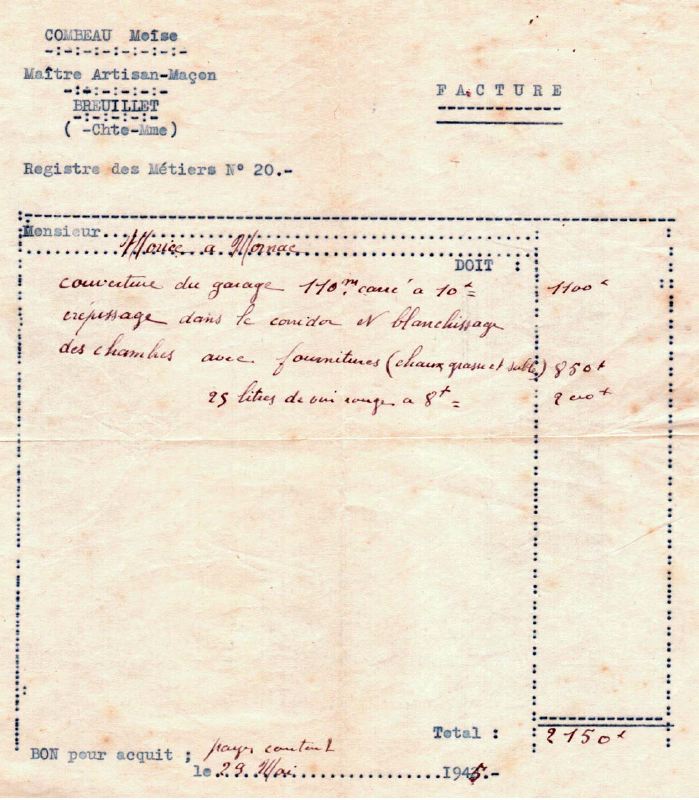 COMBEAU Moïse
-:-:-:-:-:-:-:-
Maître Artisan-Maçon
-:-:-:-:-:-
BREUILLET
-:-:-:-:-
( -Chte-Mme)
FACTURE
Registre des Métiers N° 20.-
Monsieur
à Mornac
DOIT :
couverture du garage 110 m. carré à 10f = 1100f
crépissage dans le corridor et blanchissage
des chambres avec fournitures (chaux grasse et sable) 850f
25 litres de vin rouge a 8f = 200f
Total : 2150f
BON pour acquit ; payer contant
le 29 Mai 1945.-